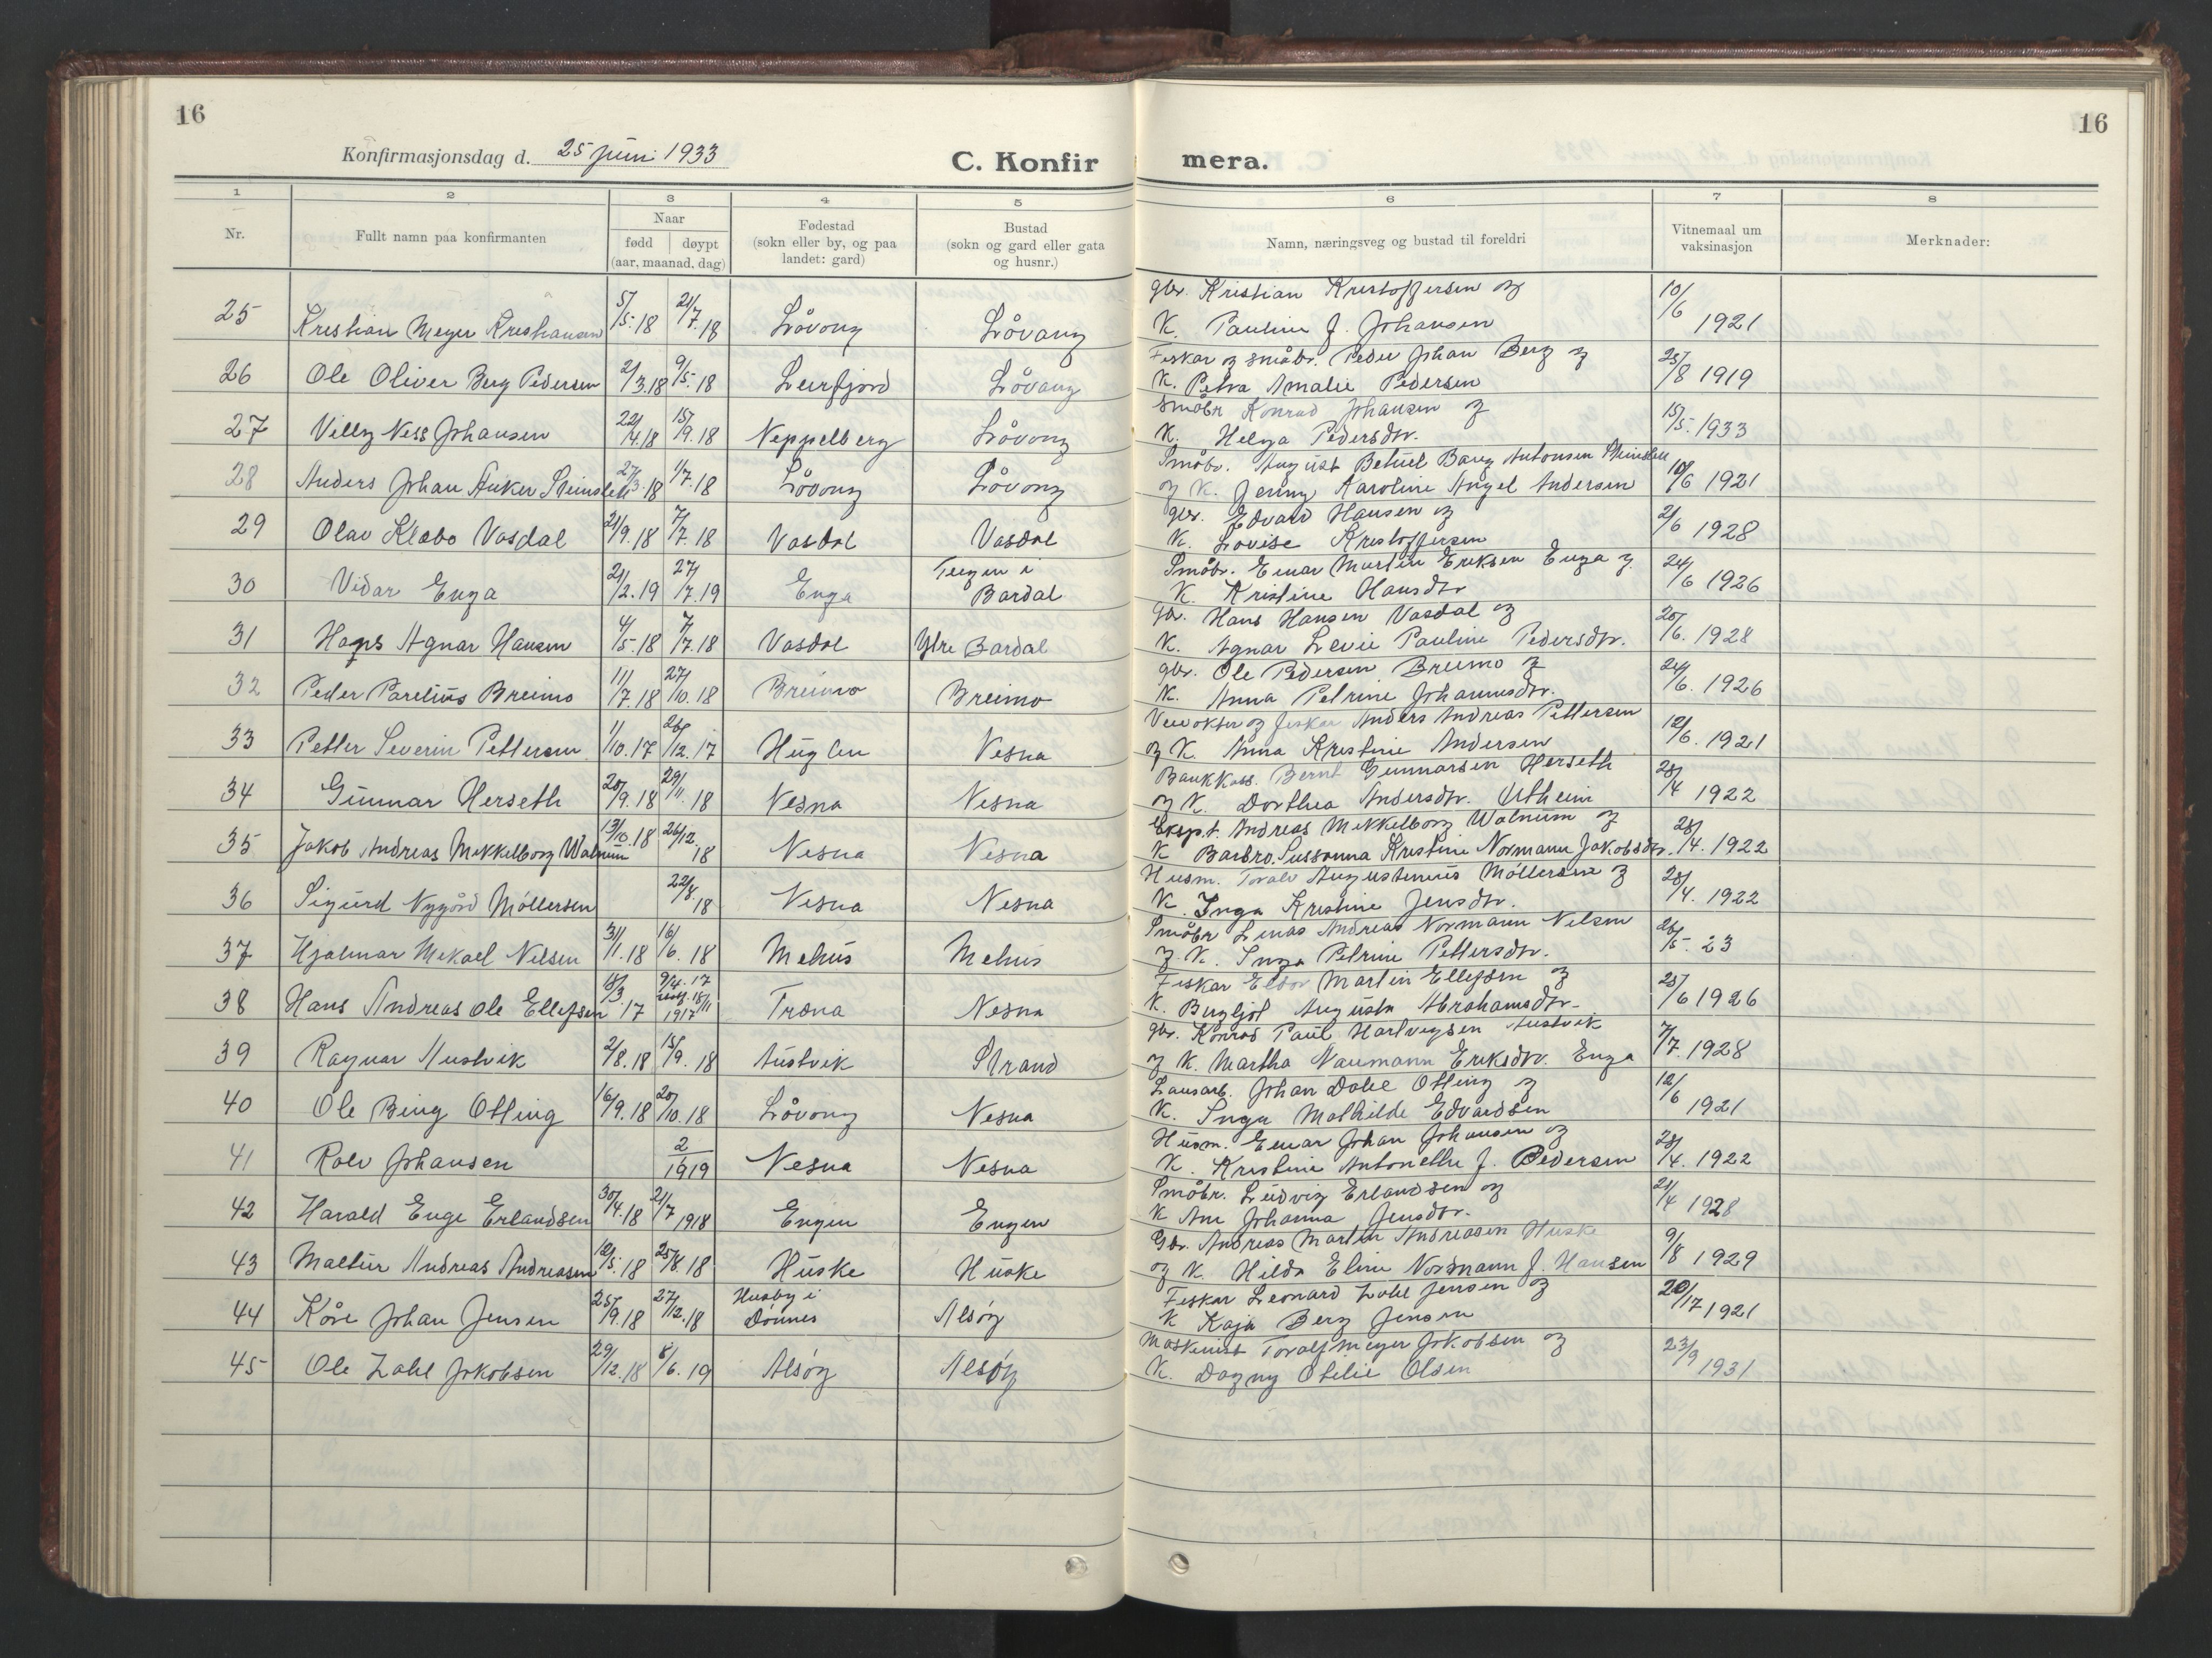 16
16
Konfirmasjonsdag d. 25 juni 1933
C. Konfir mera.
1 2 3 4 5 6 7 8
Nr.
Fullt namn paa konfirmanten
Naar
fødd døypt
(aar, maanad, dag)
Fødestad
(sokn eller by, og paa
landet: gard)
Bustad
(sokn og gard eller gata
og husnr.)
Namn, næringsveg og bustad til foreldri
Vitnemaal um
vaksinasjon
Merknader:
25 Kristian Meyer Kristiansen 5/5.18 21/7.18 Løvong Løvong gbr. Kristian Kristoffersen og
K. Pauline J. Johansen 10/6 1921
26 Ole Oliver Berg Pedersen 2/3.18 9/5.18 Leirfjord Løvong Fiskar og småbr. Peder Johan Berg og
K. Petra Amalie Pedersen 25/8 1919
27 Villy Ness Johansen 22/4.18 15/9.18 Neppelberg Løvong Småbr Konrad Johansen og
K. Helga Pedersdtr. 15/5.1933
28 Anders Johan Anker Steinslett 27/3.18 1/7.18 Løvong Løvong Småbr. August Betuel Bang Antonsen Steinslett
og K. Jenny Karoline Angel Andersen 10/6 1921
29 Olav Klæbo Vasdal 21/9.18 7/7.18 Vasdal Vasdal gbr. Edvard Hansen og
K. Lovise Kristoffersen 2/6 1928
30 Vidar Enga 21/2.19 27/7.19 Enga Teigen i
Bardal Småbr. Einar Martin Eriksen Enga og
K. Kristine Hansdtr 24/6 1926
31 Hans Agnar Hansen 4/5.18 7/7.18 Vasdal Ytre Bardal Gbr. Hans Hansen Vasdal og
K. Agnar Levie Pauline Pedersdtr. 20/6. 1928
32 Peder Parelius Breimo 11/7.18 27/10.18 Breimo Breimo gbr. Ole Pedersen Breimo og
K. Anna Petrine Johannesdtr. 24/6. 1926
33 Petter Severin Pettersen 1/10.17 26/12.17 Huglen Nesna og fiskar Anders Andreas Pettersen
og K. Anna Kristine Andersen 12/6. 1921
34 Gunnar Herseth 20/9.18 29/11.18 Nesna Nesna Bankkass. Bernt Gunnarsen Herseth
og K. Dorthea Andersdtr. Utheim 28/4 1922
35 Jakob Andreas Mekkelborg Walnum 13/10.18 26/12.18 Nesna Nesna Eksp.t. Andreas Mekkelborg Walnum og
K Barbro. Sussanna Kristine Normann Jakobsdtr. 28/4. 1922
36 Sigurd Nygård Möllersen 22/8.18 Nesna Nesna Husm. Toralv Augustinius Möllersen og
K. Inga Kristine Jensdtr. 28/4. 1922
37 Hjalmar Mekael Nilsen 31/1.18 16/6.18 Mehus Mehus Småbr Linas Andreas Normann Nilsen
og K. Inga Petrine Pettersdtr. 26/5. 23
38 Hans Andreas Ole Ellefsen 18/3.17 9/4.17 18/11 1917 Træna Nesna Fiskar Eldor Martin Ellefsen og
K. Bergljot Augusta Abrahamsdtr. 25/6 1926
39 Ragnar Austvik 2/8.18 15/9.18 Austvik Strand gbr. Konrad Paul Hartvigsen Austvik
og K. Martha Naumann Eriksdtr. Enga 7/7. 1928
40 Ole Bing Otting 16/9.18 20/10.18 Løvong Nesna Lausarb. Johan Dahl Otting og
K. Inga Mathilde Edvardsen 12/6 1921
41 Rolv Johansen 2/1919 Nesna Nesna Husm. Einar Johan Johansen og
K. Kristine Antonette J. Pedersen 28/4. 1922
42 Harald Enge Erlandsen 30/4.18 21/7 1918 Engen Engen Småbr. Ludvig Erlandsen og
K Ane Johanna Jensdtr. 21/4 1928
43 Maltur Andreas Andreasen 12/5.18 25/8.18 Huske Huske Gbr. Andreas Martin Andreasen Huske
og K. Hilda Eline Normann J. Hansen 9/8 1929
44 Kåre Johan Jensen 25/9.18 27/12.18 Husby i
Dønnes Alsøy Fiskar Leonard Zahl Jensen og
K Kaja Berg Jensen 20/17 1921
45 Ole Zahl Jakobsen 29/12.18 8/6.19 Alsøy Alsøy Maskinist Toralf Meyer Jakobsen og
K. Dagny Otilie Olsen 23/3 1931